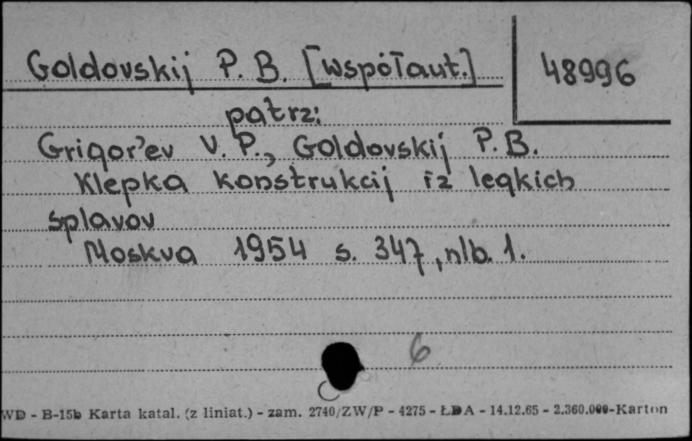 Goldovskij P. B. [współaut.]
48996
patrz:
Grigor'ev V. P., Goldovskij P. B.
Klepka konstrukcij iz legkich
splavov
Moskva 1954 s. 347, nlb. 1.
6
WD - B-15b Karta katal. (z liniat.) - zam. 2740/ZW/P - 4275 - ŁDA - 14.12.65 - 2.360.000-Karton